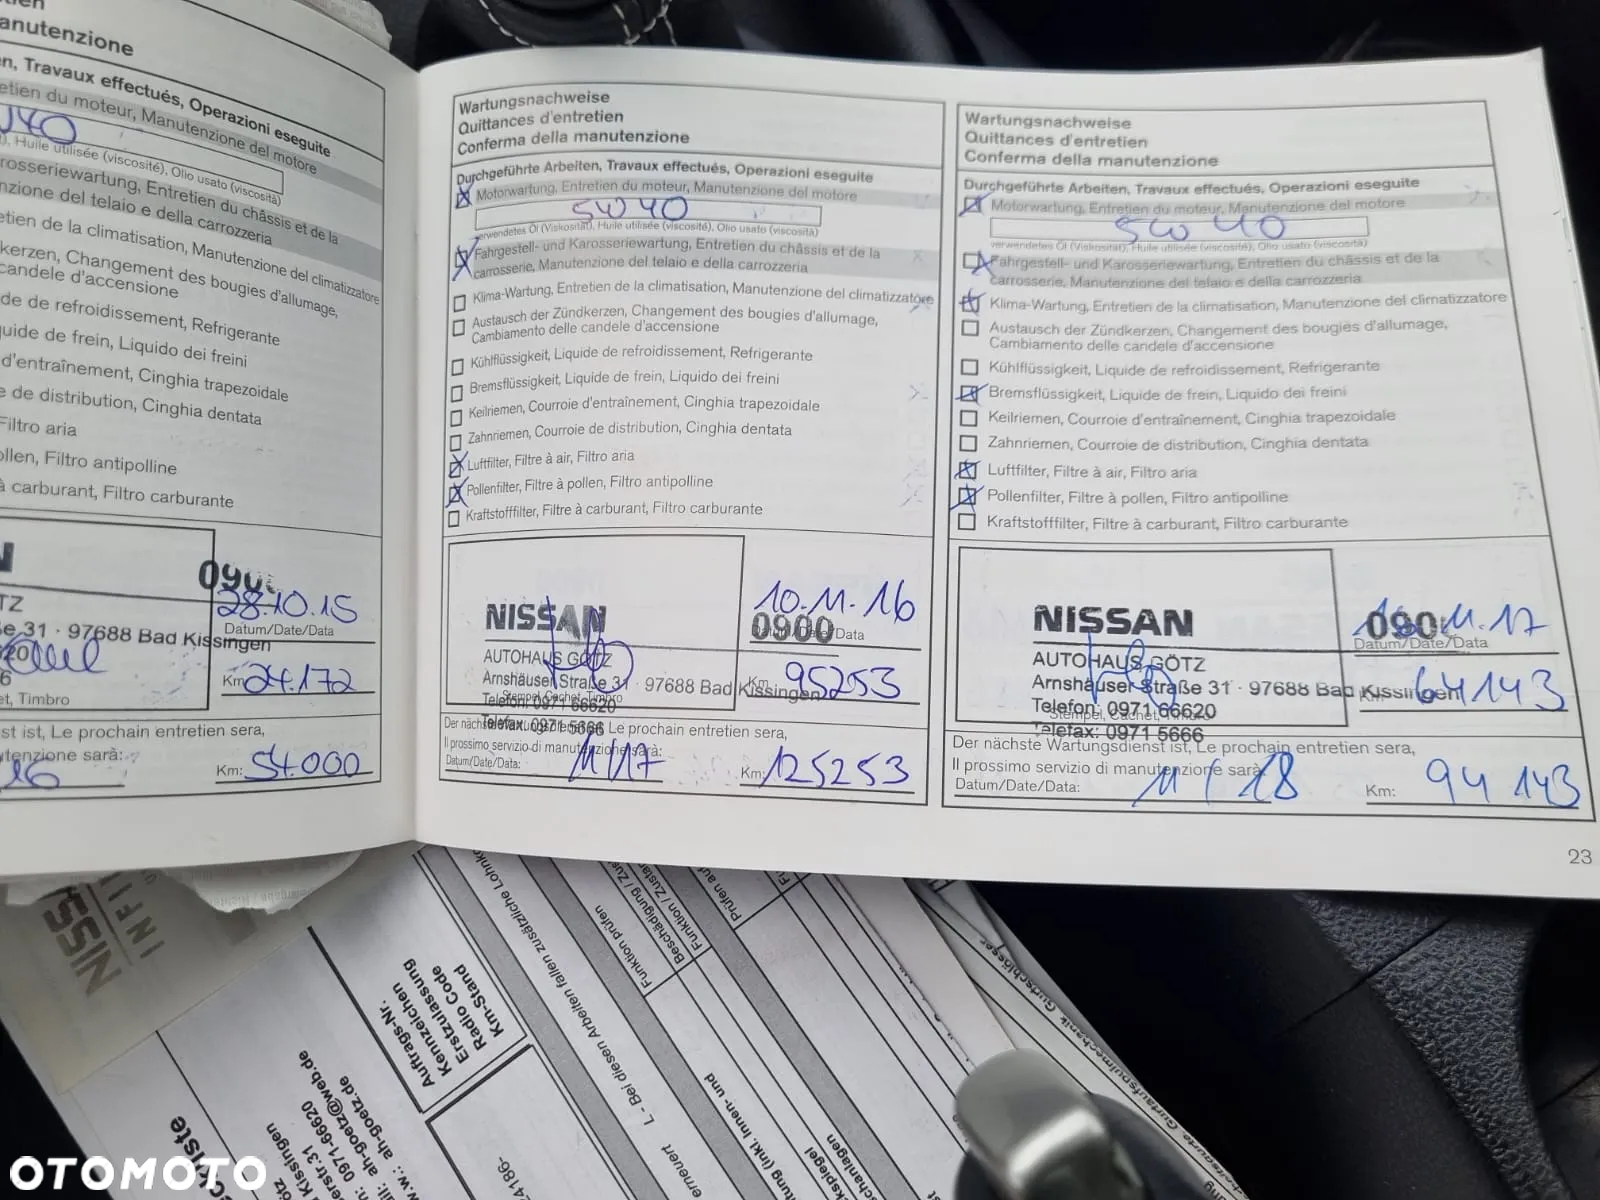 anutenzione
n, Travaux effectués, Operazioni eseguite
etien du moteur, Manutenzione del motore
W40
), Huile utilisée (viscosité), Olio usato (viscosità)
rosseriewartung, Entretien du châssis et de la
nzione del telaio e della carrozzeria
etien de la climatisation, Manutenzione del climatizzatore
kerzen, Changement des bougies d'allumage,
candele d'accensione
de de refroidissement, Refrigerante
uide de frein, Liquido dei freini
d'entraînement, Cinghia trapezoidale
e de distribution, Cinghia dentata
Filtro aria
ollen, Filtro antipolline
à carburant, Filtro carburante
28.10.15
Datum/Date/Data
e 31 · 97688 Bad Kissingen
Km 24.172
et, Timbro
st ist, Le prochain entretien sera,
utenzione sarà:
16
Km: 54.000
Wartungsnachweise
Quittances d'entretien
Conferma della manutenzione
Durchgeführte Arbeiten, Travaux effectués, Operazioni eseguite
Motorwartung, Entretien du moteur, Manutenzione del motore
5W40
verwendetes Öl (Viskosität), Huile utilisée (viscosité), Olio usato (viscosità)
Fahrgestell- und Karosseriewartung, Entretien du châssis et de la
carrosserie, Manutenzione del telaio e della carrozzeria
Klima-Wartung, Entretien de la climatisation, Manutenzione del climatizzatore
Austausch der Zündkerzen, Changement des bougies d'allumage,
Cambiamento delle candele d'accensione
Kühlflüssigkeit, Liquide de refroidissement, Refrigerante
Bremsflüssigkeit, Liquide de frein, Liquido dei freini
Keilriemen, Courroie d'entraînement, Cinghia trapezoidale
Zahnriemen, Courroie de distribution, Cinghia dentata
Luftfilter, Filtre à air, Filtro aria
Pollenfilter, Filtre à pollen, Filtro antipolline
Kraftstofffilter, Filtre à carburant, Filtro carburante
10.11.16
NISSAN
0900
Datum/Date/Data
AUTOHAUS GÖTZ
Arnshäuser Straße 31 · 97688 Bad Kissingen
Km 95253
Stempel, Cachet, Timbro
Telefon: 0971 66620
Telefax: 0971 5666
Le prochain entretien sera,
Il prossimo servizio di manutenzione sarà:
Datum/Date/Data: 11/17
Km: 125253
Wartungsnachweise
Quittances d'entretien
Conferma della manutenzione
Durchgeführte Arbeiten, Travaux effectués, Operazioni eseguite
Motorwartung, Entretien du moteur, Manutenzione del motore
5W40
verwendetes Öl (Viskosität), Huile utilisée (viscosité), Olio usato (viscosità)
Fahrgestell- und Karosseriewartung, Entretien du châssis et de la
carrosserie, Manutenzione del telaio e della carrozzeria
Klima-Wartung, Entretien de la climatisation, Manutenzione del climatizzatore
Austausch der Zündkerzen, Changement des bougies d'allumage,
Cambiamento delle candele d'accensione
Kühlflüssigkeit, Liquide de refroidissement, Refrigerante
Bremsflüssigkeit, Liquide de frein, Liquido dei freini
Keilriemen, Courroie d'entraînement, Cinghia trapezoidale
Zahnriemen, Courroie de distribution, Cinghia dentata
Luftfilter, Filtre à air, Filtro aria
Pollenfilter, Filtre à pollen, Filtro antipolline
Kraftstofffilter, Filtre à carburant, Filtro carburante
NISSAN
11.17
Datum/Date/Data
AUTOHAUS GÖTZ
Arnshäuser Straße 31 · 97688 Bad Kissingen
64143
Telefon: 0971 66620
Stempel, Cachet, Timbro
Telefax: 0971 5666
Der nächste Wartungsdienst ist, Le prochain entretien sera,
Il prossimo servizio di manutenzione sarà:
Datum/Date/Data: 11/18
Km: 94143
23
NISSAN
INFI
Auftrags-Nr.
Kennzeichen
Erstzulassung
Radio Code
Km-Stand
L - Bei diesen Arbeiten fallen zusätzliche Lohnko
Funktion prüfen
Beschädigung / Zus
Funktion / Zustan
Prüfen au
ah-goetz@web.de
ah-goetz.de
0971-66620
Kissingen
24186-
erneuert
OTOMOTO